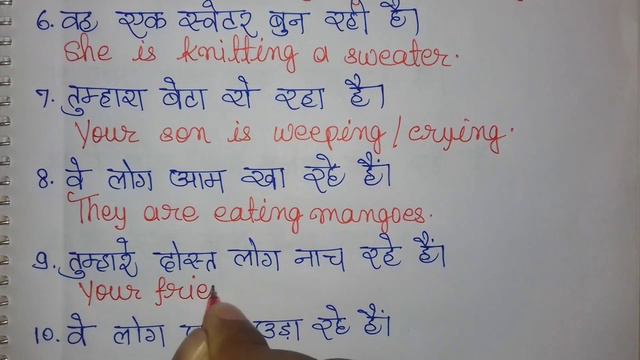 6. वह एक स्वेटर बुन रही है।
She is knitting a sweater.
7. तुम्हारा बेटा रो रहा है।
Your son is weeping/crying.
8. वे लोग आम खा रहे हैं।
They are eating mangoes.
9. तुम्हारे दोस्त लोग नाच रहे हैं।
Your frie
10. वे लोग उड़ा रहे हैं।